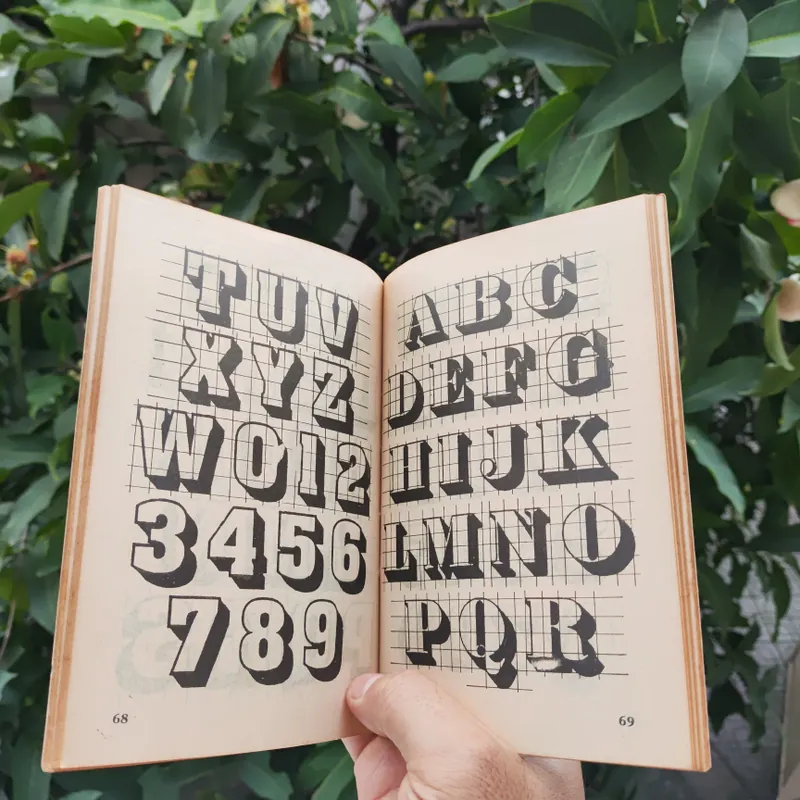 TUV
XYZ
W012
3456
789
68
ABC
DEFG
HIJK
LMNO
PQR
69